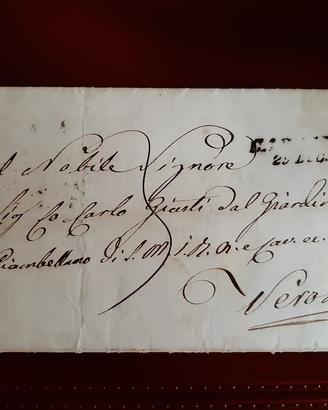 l Nobile Signore
25 LUG.
Sig Co Carlo Giusti dal Giardin
Ciambellano di S. M. i. R. A. e Cav. ec.
Vero